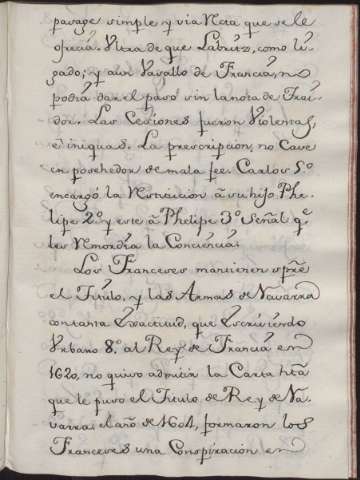 pasage simple y via Recta que se le
ofrecia. Ultra de que Labrit, como li-
gado, y aun Vasallo de Francia, no
podia dar el paso sin la nota de Trai-
dor. Las Cesiones fueron Violentas,
è iniquas. La prescripcion, no Cave
en poshehedor de mala fee. Carlos 5º
encargò la Restitucion à su hijo Phe-
lipe 2º y este à Phelipe 3º Señal q.e
les Remordia la Conciencia.
Los Franceses mantienen spre
el Titulo, y las Armas de Navarra
con tanta Exactitud, que escriviendo
Urbano 8º al Rey de Francia en
1620, no quiso admitir la Carta hta
que le puso el Titulo de Rey de Na-
varra: el año de 1604, formaron los
Franceses una Conspiracion en